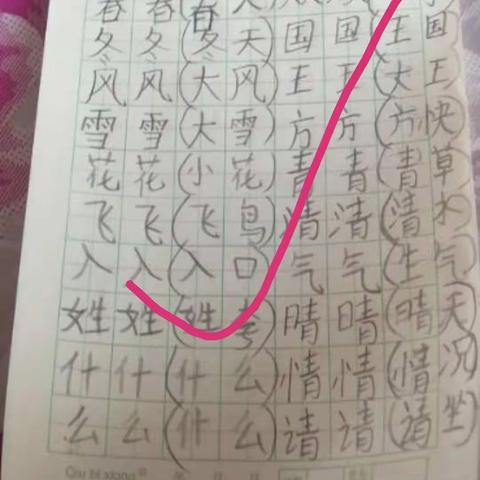 春 春 (春
冬 冬 (冬 天) 国 国 (王 国)
风 风 (大 风) 王 王 (大 王)
雪 雪 (大 雪) 方 方 (方 快)
花 花 (小 花) 青 青 (青 草)
飞 飞 (飞 鸟) 清 清 (清 水)
入 入 (入 口) 气 气 (生 气)
姓 姓 (姓 ) 晴 晴 (晴 天)
什 什 (什 么) 情 情 (情 况)
么 么 (什 么) 请 请 (请 坐)